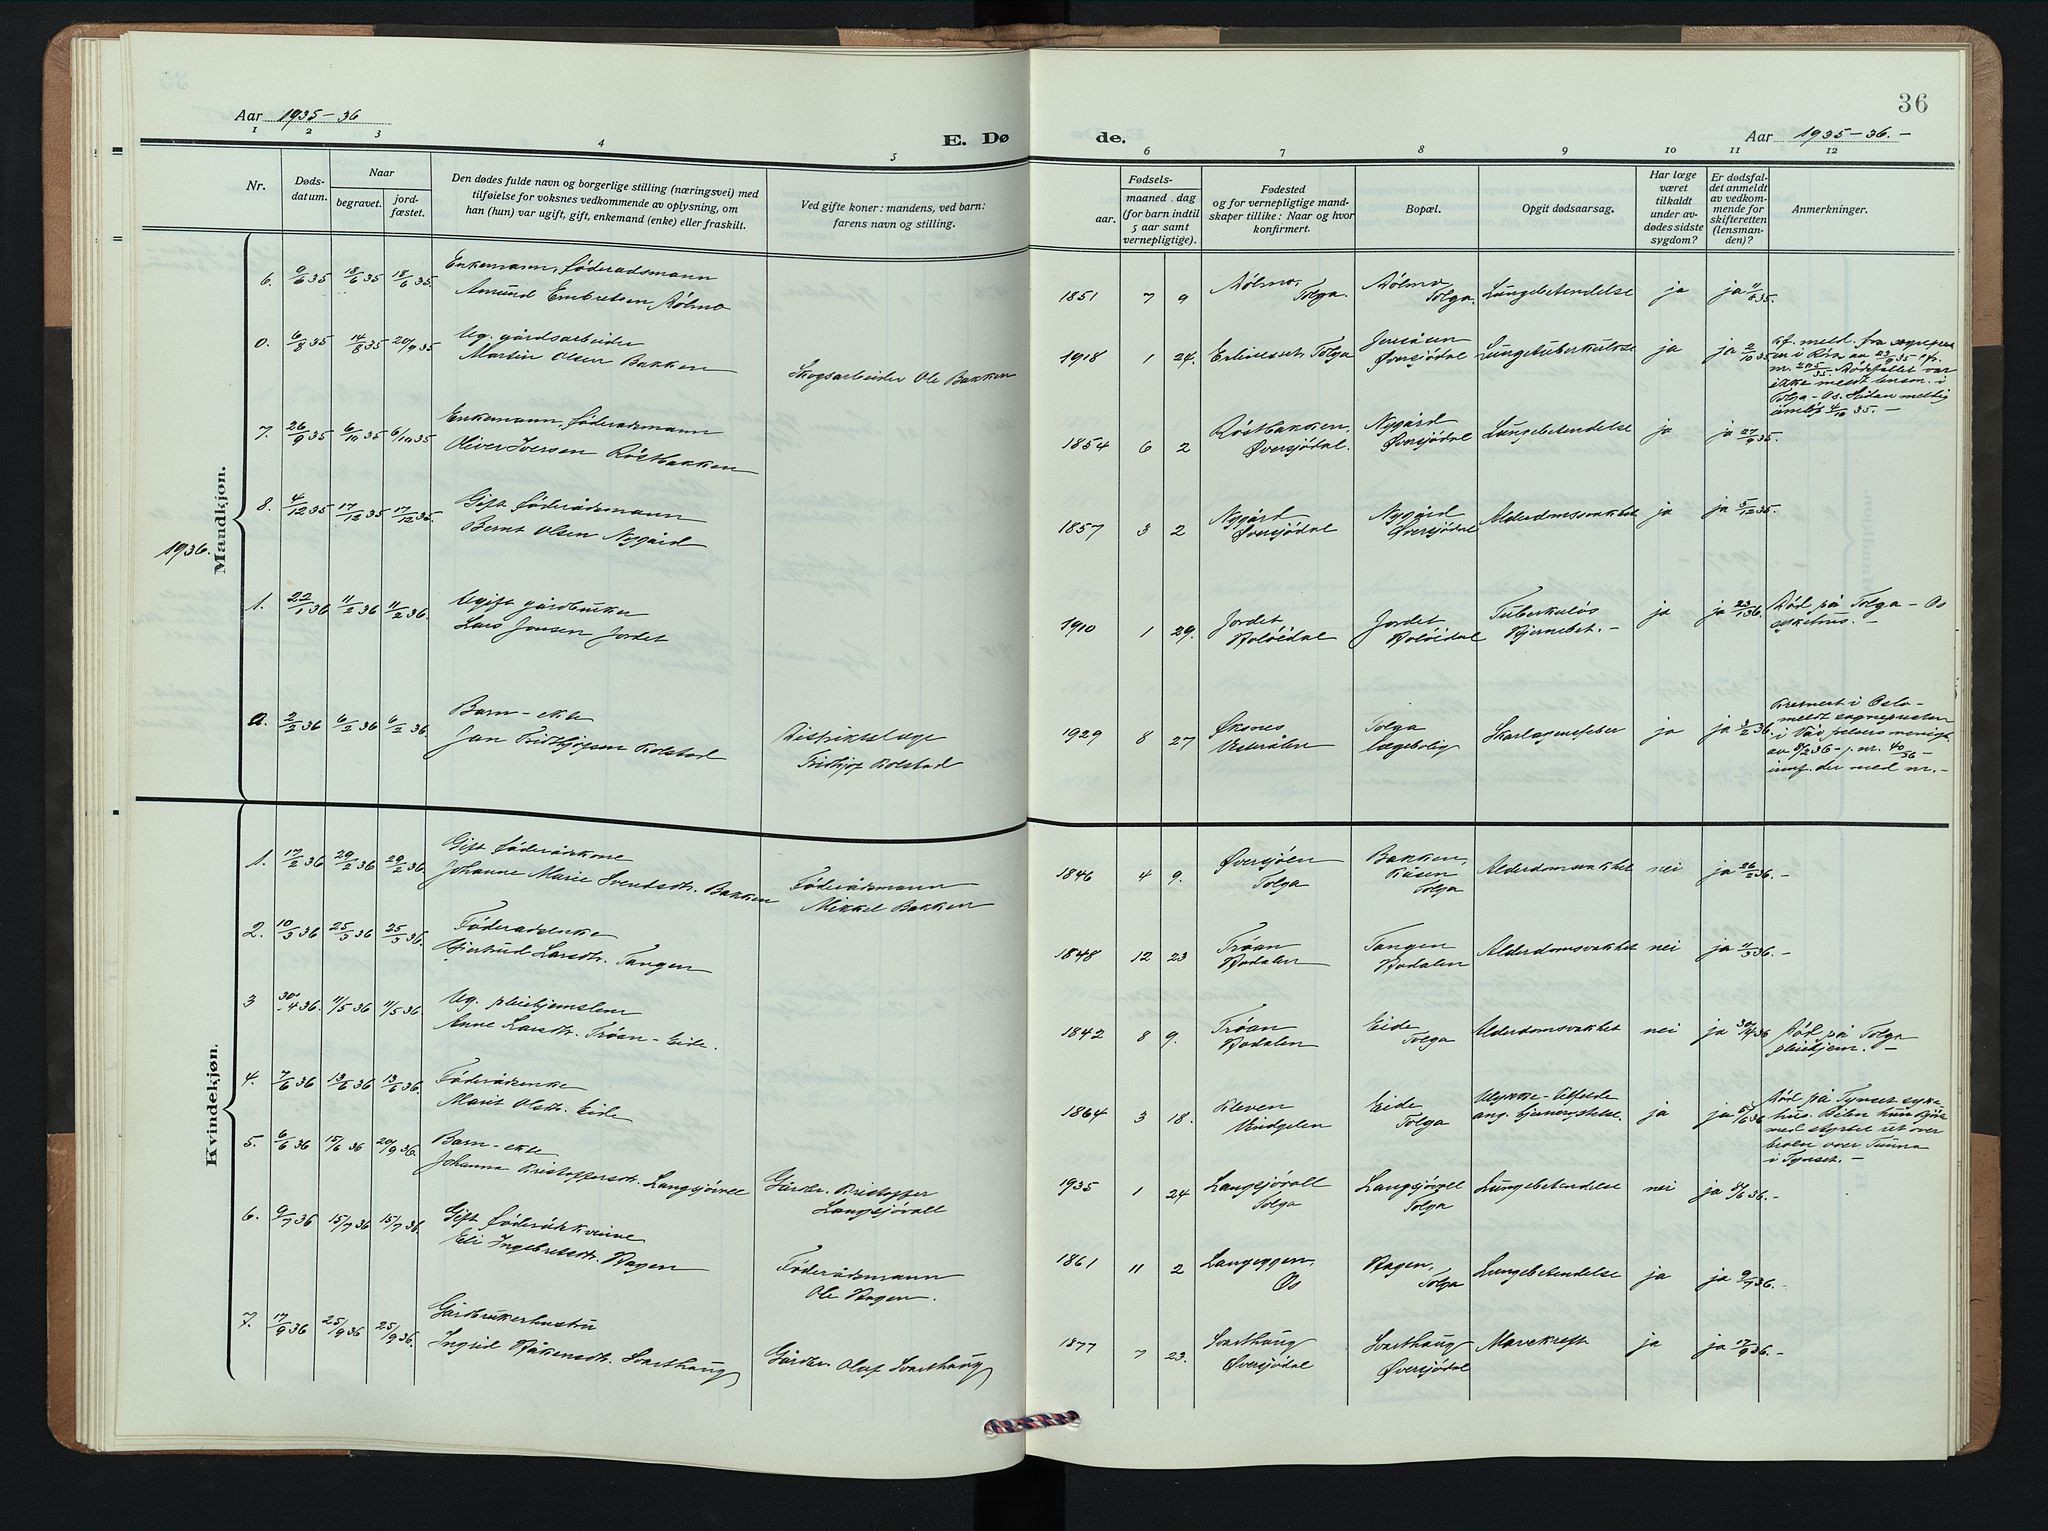 36
Aar 1935-36
E. Dø
de.
Aar 1935-36.-
1 2 3 4 5 6 7 8 9 10 11 12
Nr.
Døds-
datum.
Naar
begravet.
jord-
fæstet.
Den dødes fulde navn og borgerlige stilling (næringsvei) med
tilføielse for voksnes vedkommende av oplysning, om
han (hun) var ugift, gift, enkemand (enke) eller fraskilt.
Ved gifte koner: mandens, ved barn:
farens navn og stilling.
Fødsels-
aar.
maaned . dag
(for barn indtil
5 aar samt
vernepligtige).
Fødested
og for vernepligtige mand-
skaper tillike: Naar og hvor
konfirmert.
Bopæl.
Opgit dødsaarsag.
Har læge
været
tilkaldt
under av-
dødes sidste
sygdom?
Er dødsfal-
det anmeldt
av vedkom-
mende for
skifteretten
(lensman-
den)?
Anmerkninger.
Mandkjøn.
6. 9/6 35 18/6 35 18/6 35. Enkemann, føderadsmann
Amund Embretsen Kølmo
1851 7 9 Kølmo, Tolga. Kølmo Tolga. Lungebetendelse ja ja 11/6 35.
0. 6/8 35 14/8 35 20/9 35 Ug. gårdsarbeider
Martin Olsen Bakken
Skogsarbeider Ole Bakken
1918 1 24. Erlisesset, Tolga Øversjödal Lungetuberkulose ja ja 2/10 35
Kf. meld. fra sogne
av 23/9 35
Dödsfallet var
ikke meldt lensm. i
Tolga - Os. Sidan
4/10 35. -
7. 26/9 35 6/10 35 6/10 35 Enkemann, føderadsmann
Oliver Iversen Röstbakken
1854 6 2 Röstbakken, Øversjödal. Nygård Øversjödal Lungebetendelse ja ja 27/9 35.
8. 4/12 35 17/12 35 17/12 35. Gift föderådsmann
Bernt Olsen Nygård
1857 3 2 Nygård Øversjödal Nygård Øversjödal Alderdomssvakhet ja ja 5/12 35.
1936.
1. 22/1 36 11/2 36 11/2 36. Ugift gårdbruker
Lars Jonsen Jordet
1910 1 29. Jordet Holöidal Jordet Holöidal Tuberkulös Hjernebet. - ja ja 23/1 36.
Död på Tolga - Os
sykehus. -
a. 2/2 36 6/2 36 6/2 36. Barn - ekte
Jan Fridthjofsen Kolstad
Distriktslæge
Fridthjof Kolstad
1929 8 27 Øksnes Vesterålen Tolga lægebolig Skarlagensfeber ja ja 3/2 36.
Kremert i Oslo -
meldt sognepresten
av 8/2 36 - j. nr. 40/36
Kvindekjøn.
1. 17/2 36 29/2 36 29/2 36. Gift föderådskone
Johanne Marie Svendsdtr. Bakken
Föderådsmann
Mikkel Bakken
1846 4 9. Øversjöen Tolga Bakken, Tolga Alderdomssvakhet nei ja 26/2 36. -
2. 10/3 36 25/3 36 25/3 36. Föderadsenke
Gjertrud Larsdtr. Tangen
1848 12 23 Tröan Hodalen Tangen Hodalen Alderdomssvakhet nei ja 11/3 36. -
3 30/4 36. 11/5 36 11/5 36. Ug. pleiehjemslem
Anne Larsdtr. Tröan - Eide.
1842 8 9. Tröan Hodalen Eide Tolga Alderdomssvakhet nei ja 30/4 36
Död på Tolga
pleiehjem. -
4. 7/6 36 13/6 36 13/6 36. Föderådsenke
Marit Olsdtr. Eide
1864 3 18. Kleven Vingelen Eide Tolga Ulykke- tilfelde ang. hjernerystelse. ja ja 8/6 36
Död på Tynset syke-
hus. Bilen hun kjörte
med styrtet ut over
broen over Tunna
i Tynset. -
5. 6/6 36 15/6 36 20/9 36. Barn - ekte
Johanna Kristoffersdtr. Langsjövoll
Gårdbr. Kristoffer
Langsjövoll
1935 1 24 Langsjövoll Tolga Langsjövoll Tolga Lungebetendelse nei ja 8/6 36. -
6. 9/7 36 15/7 36 15/7 36. Gift föderådskvinne
Eli Ingebretsdtr. Hagen
Föderådsmann
Ole Hagen.
1861 11 2 Langeggen, Os Hagen, Tolga Lungebetendelse ja ja 9/7 36. -
7. 17/9 36 25/9 36 25/9 36. Gårdbrukerhustru
Ingrid Håkensdtr. Svarthaug
Gårdbr. Olaf Svarthaug
1877 7 23. Svarthaug Øversjödal Svarthaug Øversjödal Mavekreft ja ja 17/9 36. -